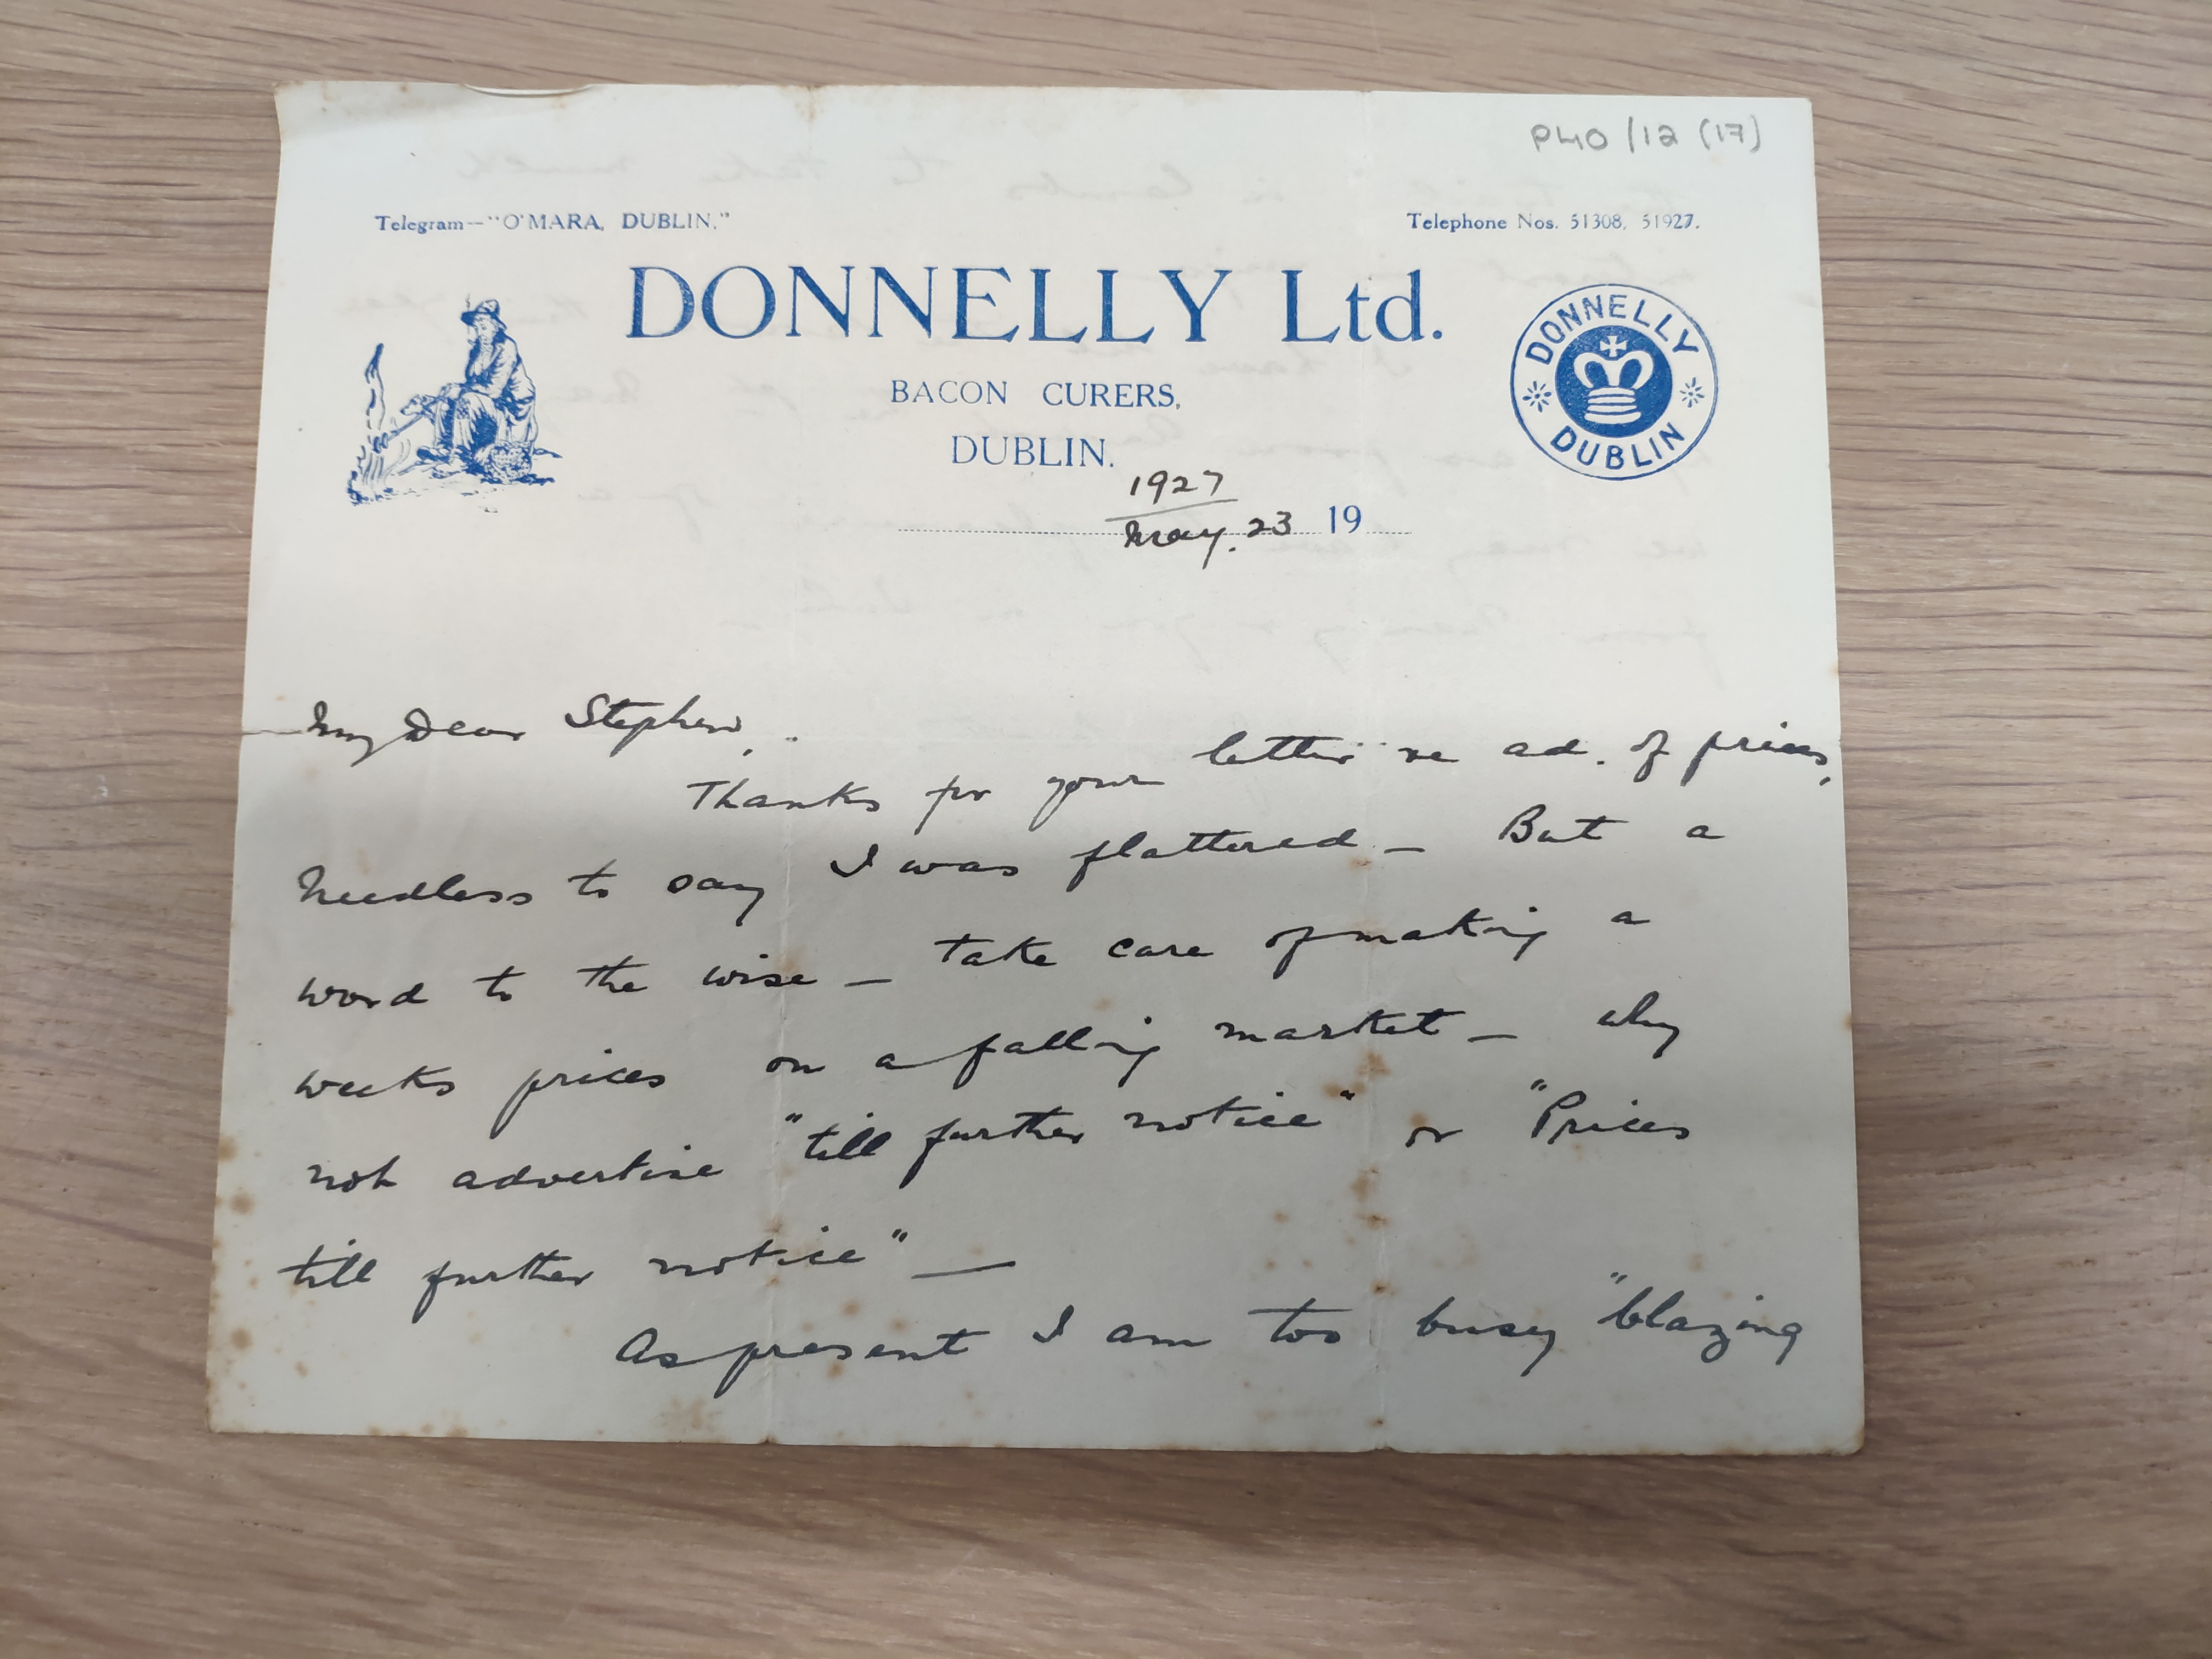 P40/12 (17)
Telegram—"O'MARA, DUBLIN."
Telephone Nos. 51308, 51927.
DONNELLY Ltd.
BACON CURERS,
DUBLIN.
DONNELLY
DUBLIN
1927
May. 23 19
My Dear Stephen,
Thanks for your letter re ad. of prices,
Needless to say I was flattered – But a
word to the wise – take care of making a
weeks prices on a falling market – why
not advertise "till further notice" or "Prices
till further notice" —
As present I am too busy "blazing